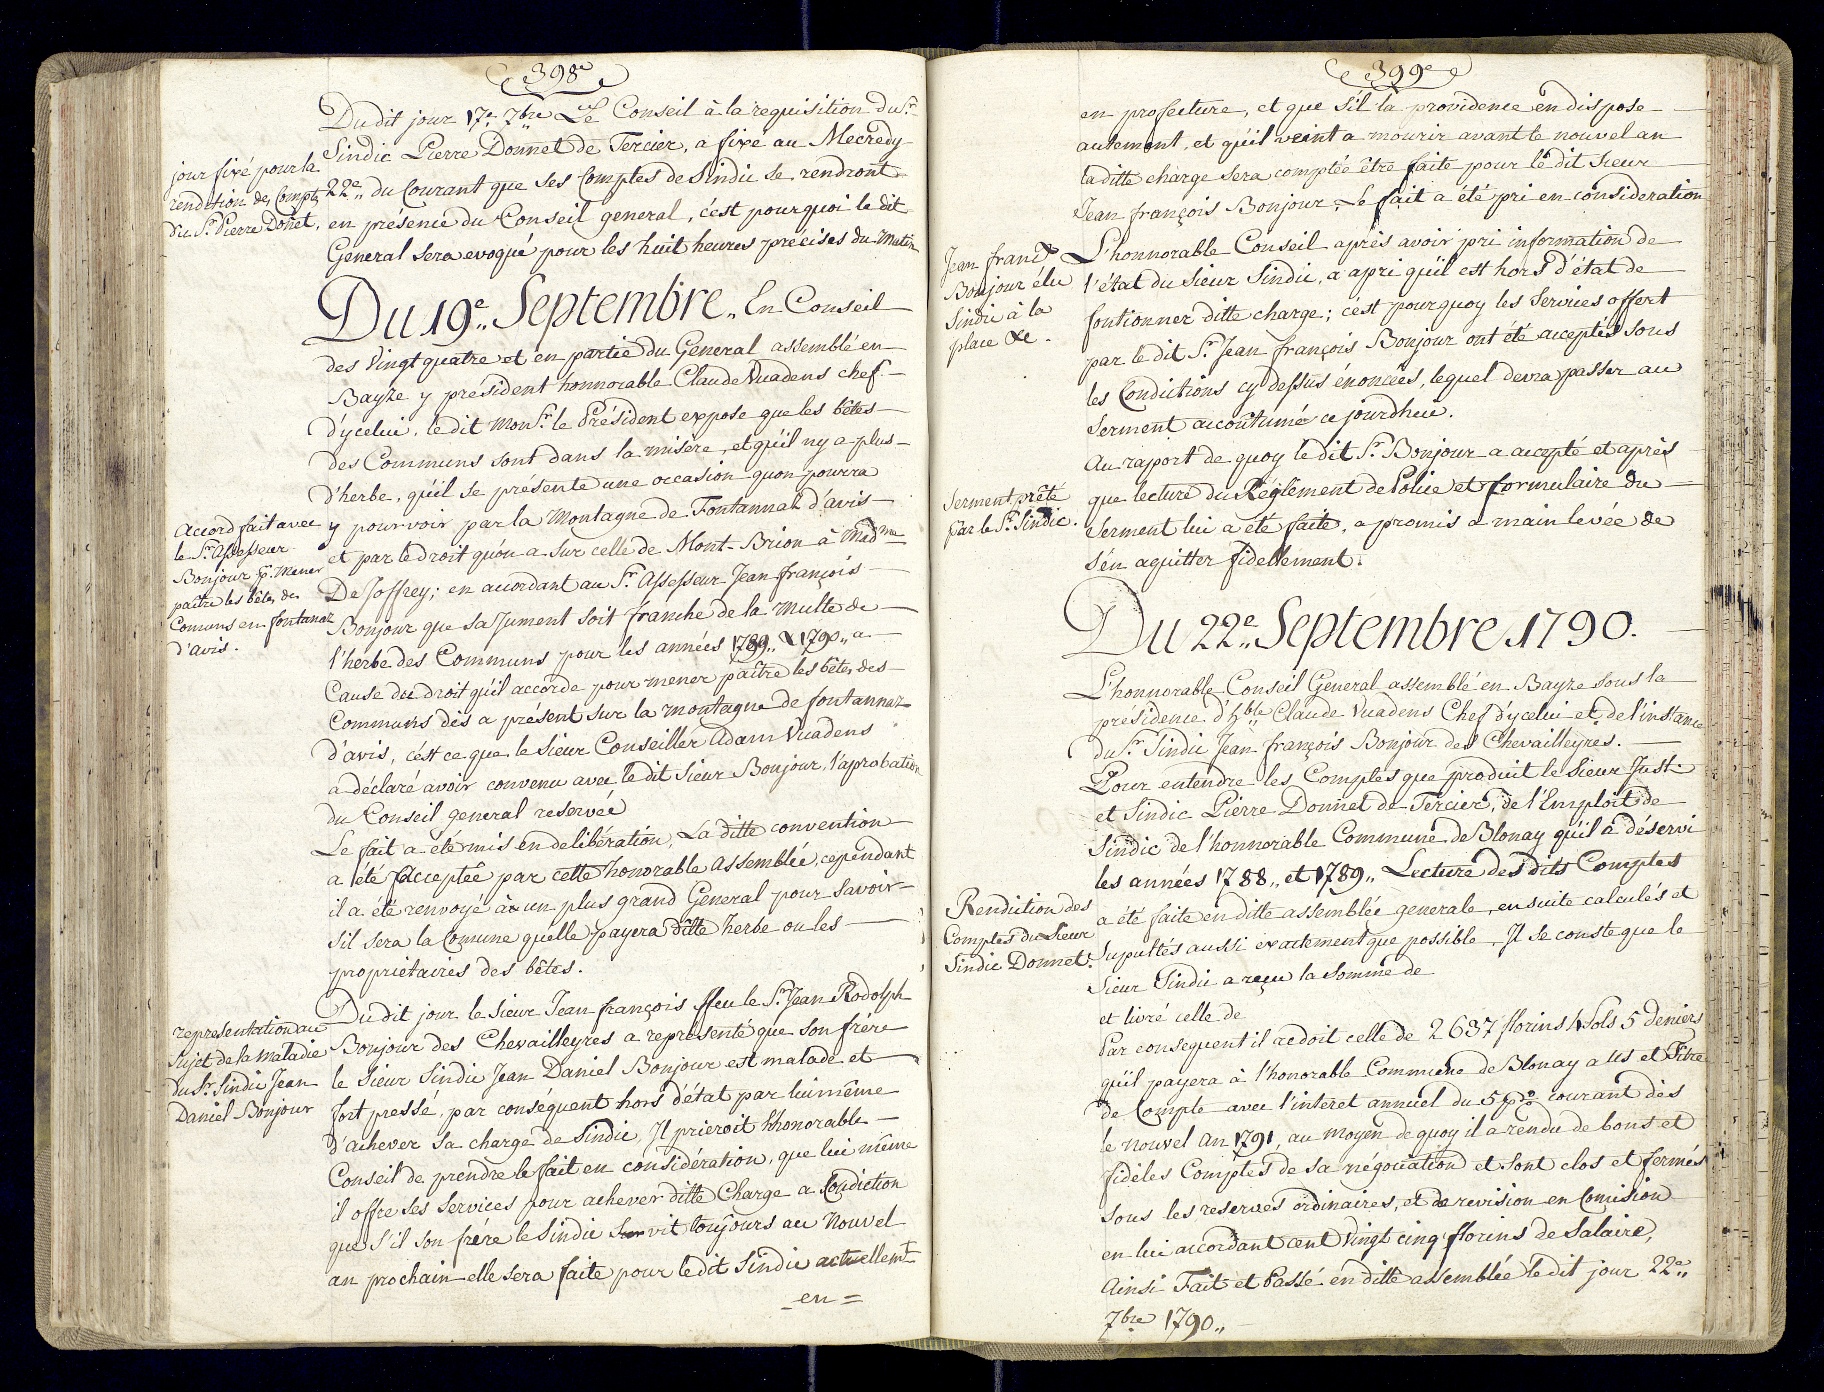 398e
Du dit jour 17e 7bre Le Conseil à la requisition du Sr
Sindic Pierre Donnet de Tercier, a fixe au Mecredy
jour fixé pour la
rendition des Compts
du Sr. Pierre Donet.
22e,, du Courant que ses Comptes de Sindic se rendront
en présence du Conseil general, c'est pourquoi le dit
General sera evoqué pour les huit heures précises du Matin
Du 19e,, Septembre,, En Conseil
des Vingt quatre et en partie du General assemblé en
Bayze y président honnorable Claude Vuadens chef
d'ycelui. le dit Monsr. le Président expose que les bêtes
des Communs sont dans la misère, et qu'il ny a plus
d'herbe, qu'il se présente une occasion quon pourra
Accord fait avec
le Sr. Assesseur
Bonjour pr. mener
paître les bêtes des
Comuns en fontanaz
d'avis.
y pourvoir par la Montagne de Fontannah d'avis
et par le droit qu'on a sur celle de Mont-Brion à Madme
De Joffrey; en acordant au Sr. Assesseur Jean françois
Bonjour que sa Jument soit franche de la Multe de
l'herbe des Communs pour les années 1789,, & 1790,, a
Cause du droit qu'il accorde pour mener paître les bêtes des
Communs dès a présent sur la montagne de fontannaz
d'avis, c'est ce que le Sieur Conseiller Adam Vuadens
a déclaré avoir convenu avec le dit Sieur Bonjour, l'aprobation
du Conseil general reservée
Le fait a été mis en delibération, La ditte convention
a été acceptée par cette honorable assemblée, cependant
il a été renvoyé à un plus grand General pour savoir
s'il sera la Comune quelle payera ditte herbe ou les
propriétaires des bêtes.
representation au
sujet de la maladie
du Sr. Sindic Jean
Daniel Bonjour
Du dit jour le Sieur Jean françois ffeu le Sr. Jean Rodolph
Bonjour des Chevailleyres a representé que son frère
le Sieur Sindic Jean Daniel Bonjour est malade et
fort pressé, par conséquent hors d'état par lui même
d'achever sa charge de Sindic, Il prieroit l'honorable
Conseil de prendre le fait en considération, que lui même
il offre ses services pour achever ditte Charge a Condiction
que s'il son frére le Sindic vit toujours au Nouvel
an prochain elle sera faite pour le dit Sindic actuellemt
en =
399e
en profecture, et que s'il la providence en dispose
autement, et qu'il veint a mourir avant le nouvel an
la ditte charge sera comptée être faite pour le dit Sieur
Jean françois Bonjour, Le fait a été pri en consideration
Jean franc
Bonjour élu
Sindic à la
place &c.
L'honnorable Conseil après avoir pri information de
l'état du Sieur Sindic, a apri qu'il est hors d'état de
fontionner ditte charge; c'est pourquoy les Services offert
par le dit Sr. Jean françois Bonjour ont été acceptés sous
les Conditions cy dessus énoncées, lequel devra passer au
Serment accoûtumé ce jourdhui.
Serment prêté
par le Sr. Sindic.
Au raport de quoy le dit Sr. Bonjour a accepté et après
que lecture du Réglement de Police et formulaire du
Serment lui a été faite, a promis a main levée de
s'en aquitter fidellement.
Du 22e,, Septembre 1790.
L'honnorable Conseil General assemblé en Bayze sous la
présidence d'hble Claude Vuadens Chef d'ycelui et de l'instance
du Sr. Sindic Jean françois Bonjour des Chevailleyres.
Pour entendre les Comptes que produit le Sieur Just.
et Sindic Pierre Donnet de Tercier, de l'Emploit de
Sindic de l'honnorable Commune de Blonay qu'il à déservi
les années 1788,, et 1789,, Lecture des dits Comptes
Rendition des
Comptes du Sieur
Sindic Donnet.
a été faite en ditte assemblée generale, en suite calculés et
suputtés aussi exactement que possible, Il se conste que le
Sieur Sindic a reçu la Somme de
et livré celle de
Par consequent il redoit celle de 2637 florins 4 sols 5 deniers
qu'il payera à l'honorable Commune de Blonay a us et Titre
de Compte avec l'interet annuel du 5 p% courant dès
le nouvel an 1791, au moyen de quoy il a rendu de bons et
fidéles Comptes de sa négociation et sont clos et fermés
sous les reserves ordinaires, et de revision en Comision
en lui accordant cent vingt cinq florins de Salaire,
Ainsi Fait et Passé en ditte assemblée le dit jour 22e,,
7bre 1790,,